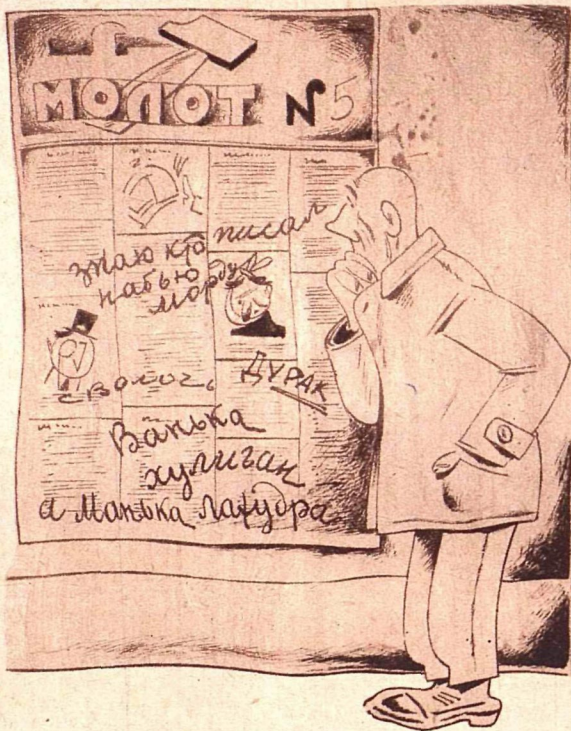 МОЛОТ N5
знаю кто писал
набью
морду
сволочь
ДУРАК
Ванька
хулиган
а Манька лахудра